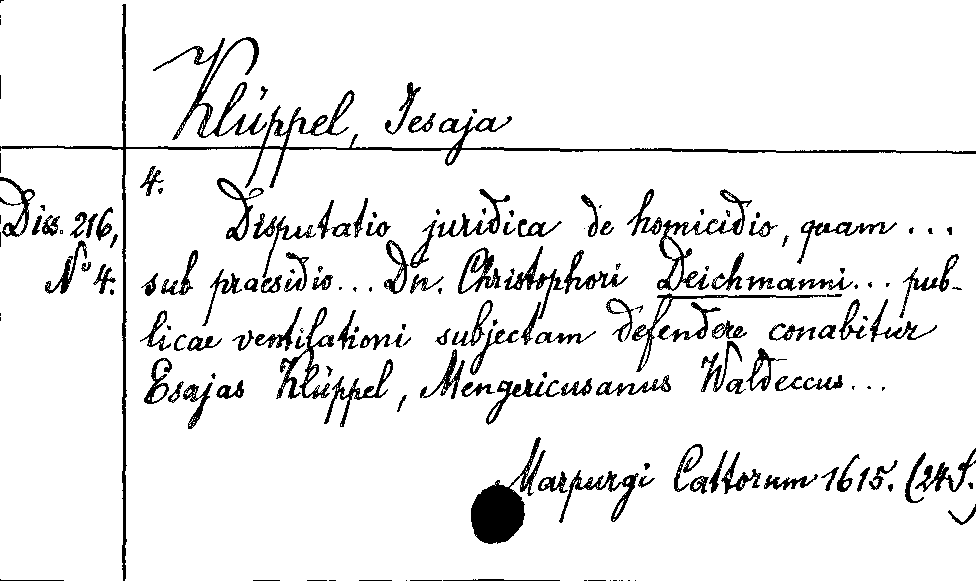 Klüppel, Jesaja
4.
Diss. 216,
No 4.
Disputatio juridica de homicidio, quam ...
sub praesidio... Dn. Christophori Deichmanni... pub-
licae ventilationi subjectam defendere conabitur
Esajas Klüppel, Mengericusanus Waldeccus...
Marpurgi Cattorum 1615. (24 S.